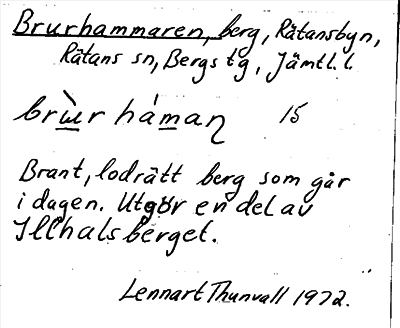 Brurhammaren, berg, Rätansbyn,
Rätans sn, Bergs tg, Jämtl. l.
brùr háman 15
Brant, lodrätt berg som går
i dagen. Utgör en del av
Illhalsberget.
Lennart Thunvall 1972.